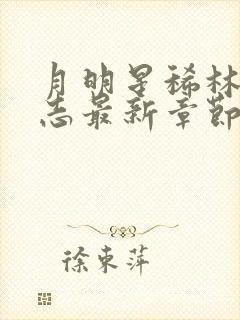 月明星稀林
志最新章節
徐東萍